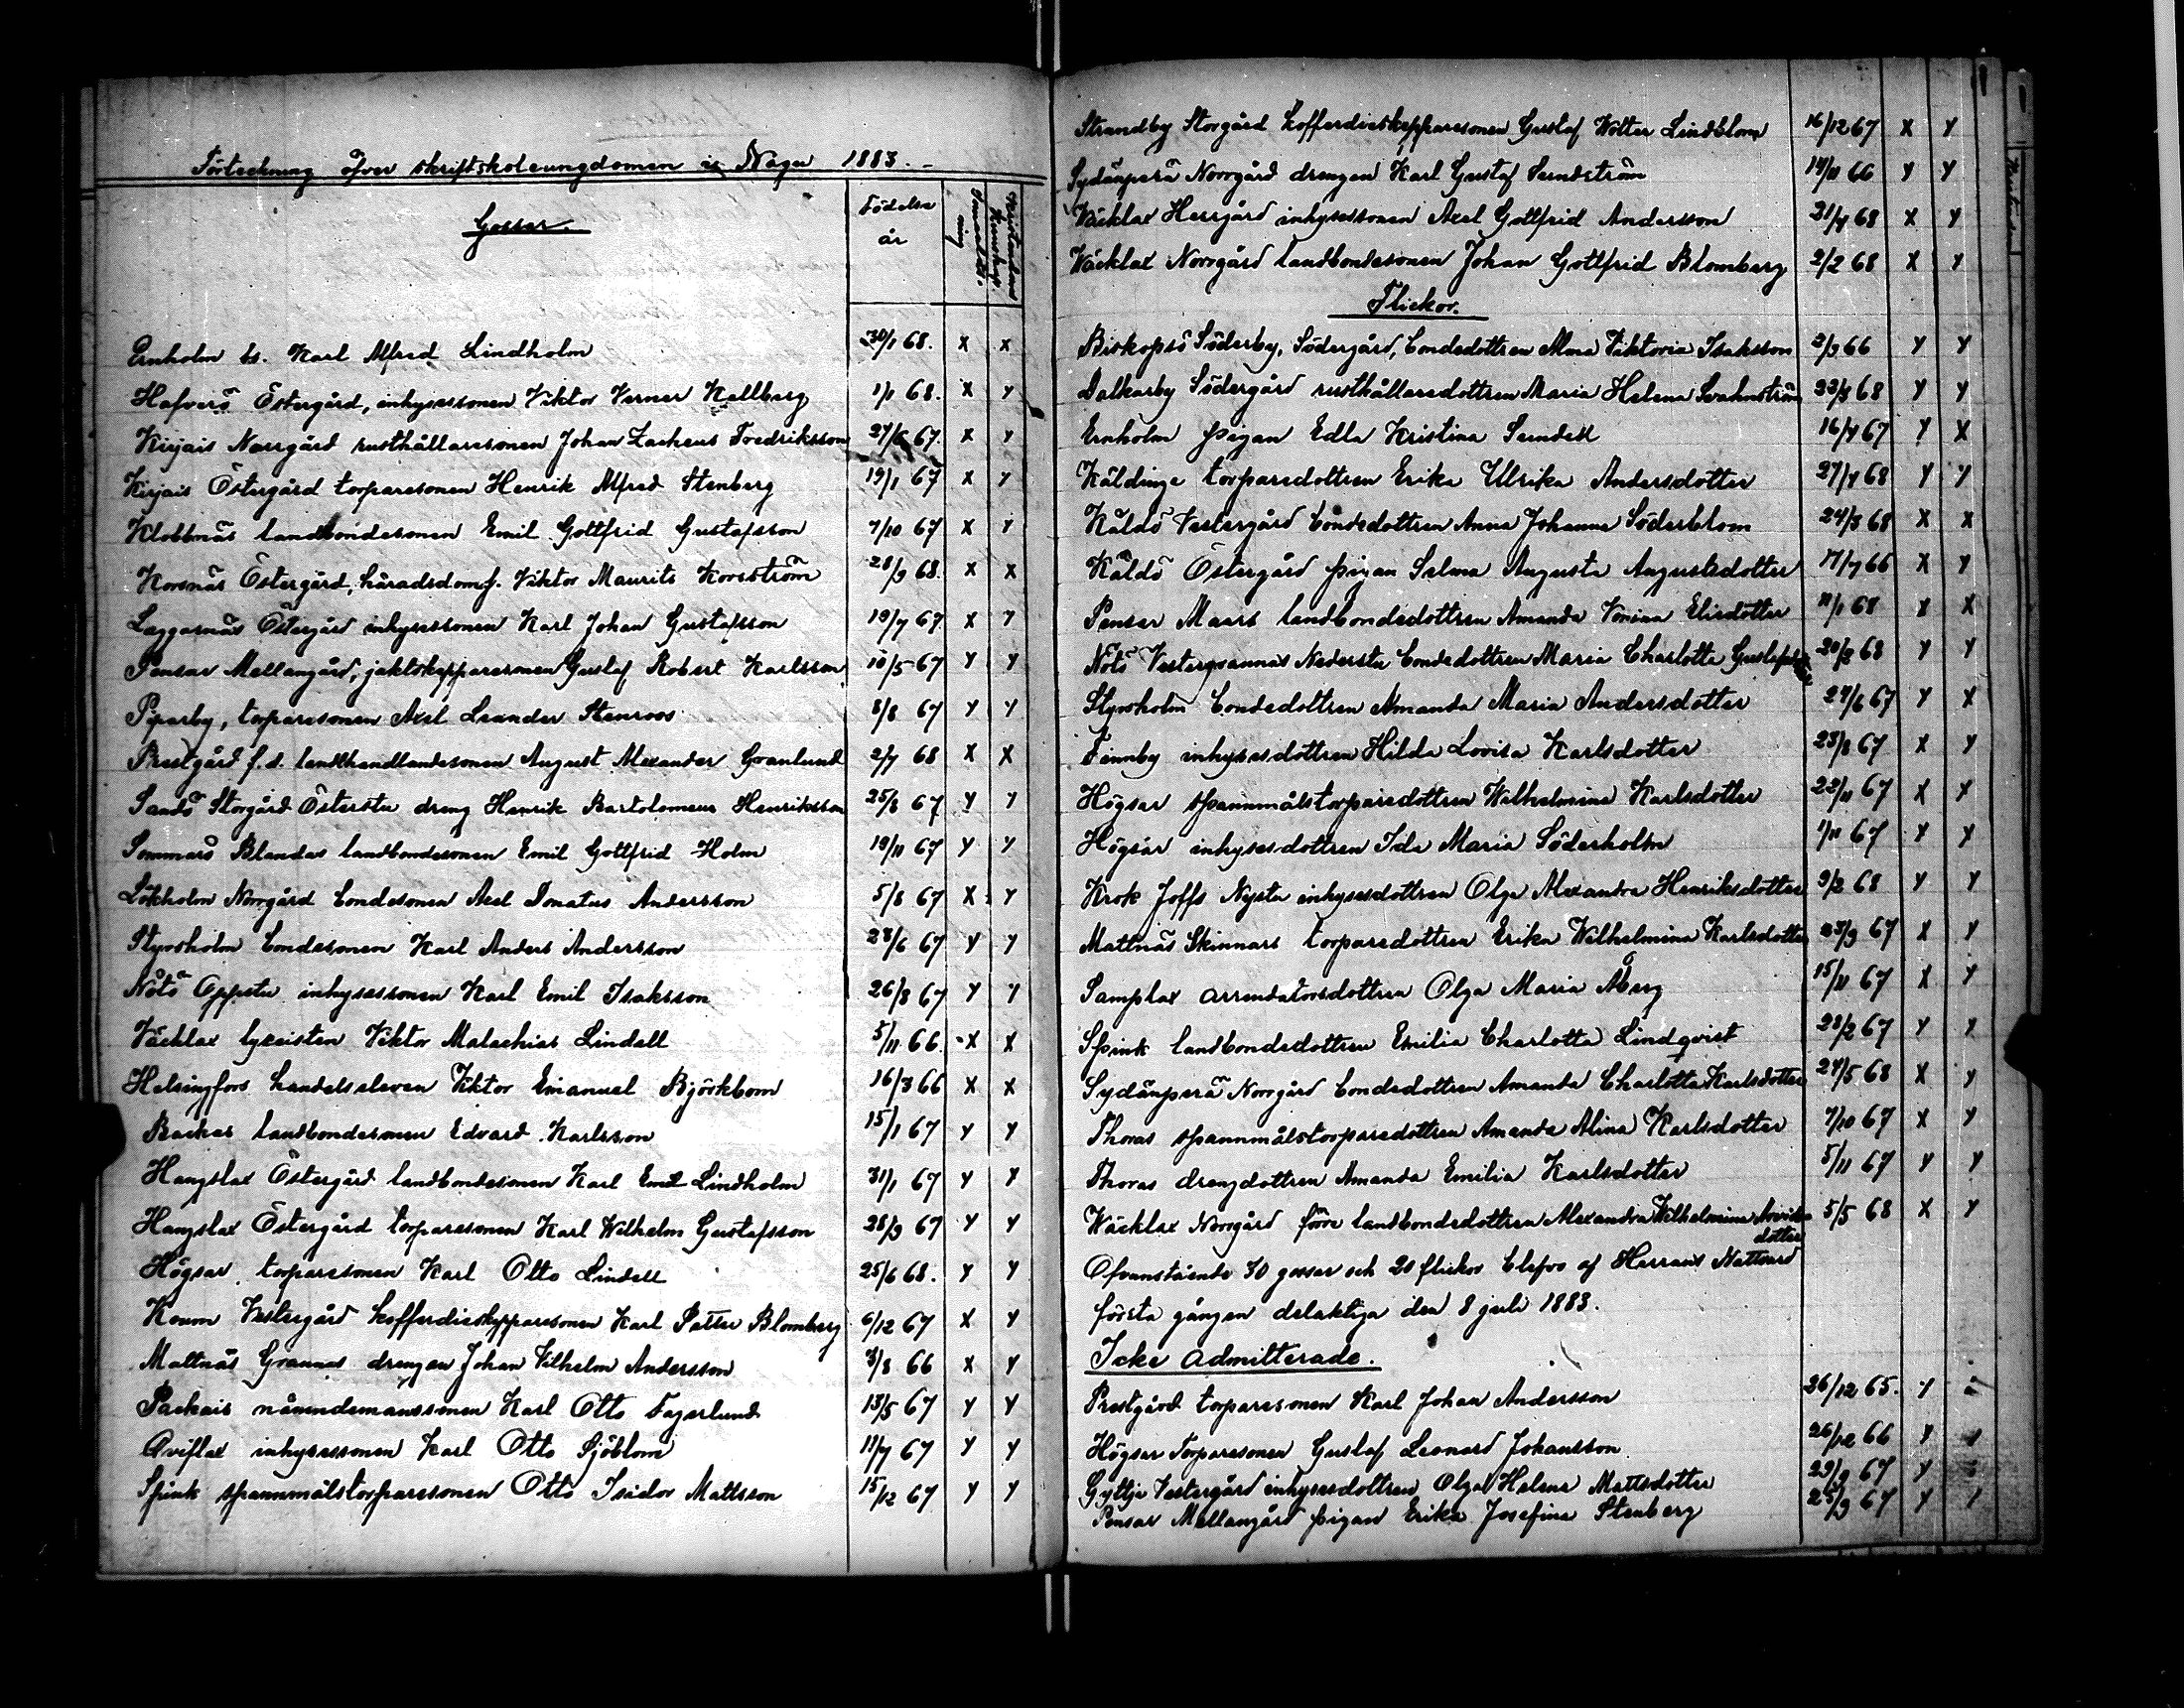 Förteckning öfver skriftskoleungdomen i Nagu 1883.
Gossar.
Födelse
år
Ernholm bs. Karl Alfred Lindholm 30/1 68. x x
Hafverö Östergård, inhysessonen Viktor Verner Kallberg 1/1 68. x y
Kirjais Norrgård rusthållaresonen Johan Zacheus Fredriksson 27/6 67. x y
Kirjais Östergård torparesonen Henrik Alfred Stenberg 19/1 67 x y
Klobbnäs landbondesonen Emil Gottfrid Gustafsson 7/10 67 x y
Korsnäs Östergård, häradsdom.s. Viktor Maurits Korsström 28/9 68. x x
Laggarnäs Östergård inhysessonen Karl Johan Gustafsson 19/7 67 x y
Pensar Mellangård, jaktskepparesonen Gustaf Robert Karlsson 10/5 67 y y
Piparby, torparesonen Axel Leander Stenroos 8/8 67 y y
Prestgård f.d. landthandlandesonen August Alexander Granlund 2/7 68 x x
Sandö Storgård Österstu dreng Henrik Bartolomeus Henriksson 25/8 67 y y
Sommarö Blandas landbondesonen Emil Gottfrid Holm 19/11 67 y y
Lökholm Norrgård bondesonen Axel Donatus Andersson 5/8 67 x y
Styrsholm bondesonen Karl Anders Andersson 28/6 67 y y
Nötö Oppstu inhysessonen Karl Emil Isaksson 26/8 67 y y
Väcklax lyceisten Viktor Malachias Lindell 5/11 66. x x
Helsingfors handelseleven Viktor Emanuel Björkbom 16/3 66 x x
Backas landbondesonen Edvard Karlsson 15/1 67 y y
Hangslax Östergård landbondesonen Karl Emil Lindholm 31/1 67 y y
Hangslax Östergård torparesonen Karl Wilhelm Gustafsson 28/9 67 y y
Högsar torparesonen Karl Otto Lindell 25/6 68. y y
Koum Vestergård kofferdieskepparesonen Karl Petter Blomberg 6/12 67 x y
Mattnäs Grannas drengen Johan Vilhelm Andersson 3/8 66 x y
Packais nämndemanssonen Karl Otto Fagerlund 13/5 67 y y
Qviflax inhysessonen Karl Otto Sjöblom 11/7 67 y y
Spink spannmålstorparesonen Otto Isidor Mattsson 15/12 67 y y
Strandby Storgård kofferdieskepparesonen Gustaf Wolter Lindblom 16/12 67 x y
Sydänperä Norrgård drengen Karl Gustaf Sundström 14/11 66 y y
Väcklax Herrgård inhysessonen Axel Gottfrid Andersson 21/4 68 x y
Väcklax Norrgård landbondesonen Johan Gottfrid Blomberg 2/2 68 x y
Flickor.
Biskopsö Söderby, Södergård, bondedottren Alma Viktoria Isaksson 2/9 66 y y
Dalkarby Södergård rusthållaredottren Maria Helena Svahnström 23/3 68 y y
Ernholm pigan Edla Kristina Sundell 16/4 67 y x
Käldinge torparedottren Erika Ulrika Andersdotter 27/4 68 y y
Käldö Vestergård bondedottren Anna Johanna Söderblom 24/3 68 x x
Käldö Östergård pigan Selma Augusta Augustsdotter 17/7 66 x y
Pensar Maars landbondedottren Amanda Elisdotter 11/1 68 x x
Nötö Vestergrannas Nederstu bondedottren Maria Charlotta 20/2 68 y y
Styrsholm bondedottren Amanda Maria Andersdotter 24/6 67 y x
Finnby inhysesdottren Hilda Lovisa Karlsdotter 23/8 67 x y
Högsar spannmålstorparedottren Wilhelmina Karlsdotter 22/11 67 x y
Högsar inhysesdottren Ida Maria Söderholm 1/11 67 y y
Krok Joffs Nystu inhysesdottren Olga Alexandra Henriksdotter 9/2 68 y y
Mattnäs Skinnars torparedottren Erika Wilhelmina Karlsdotter 23/9 67 x y
Samplax arrendatorsdottren Olga Maria Åberg 15/11 67 x y
Spink landbondedottren Emilia Charlotta Lindqvist 28/2 67 y y
Sydänperä Norrgård bondedottren Amanda Charlotta Karlsdotter 24/5 68 x y
Thoras spannmålstorparedottren Amanda Alina Karlsdotter 7/10 67 x y
Thoras drengdottren Amanda Emilia Karlsdotter 5/11 67 y y
Väcklax Norrgård förre landbondedottren Alexandra Wilhelmina Arvids 5/5 68 x y
dotter
Ofvanstående 30 gossar och 20 flickor blefvo af Herrans Nattvard
första gången delaktiga den 8 juli 1883.
Icke admitterade.
Prestgård torparesonen Karl Johan Andersson 26/12 65. y
Högsar Torparesonen Gustaf Leonard Johansson 26/12 66 y y
Gyttja Vestergård inhysesdottren Olga Helena Mattsdotter 29/9 67 y
Pensar Mellangård pigan Erika Josefina Stenberg 25/9 67 y